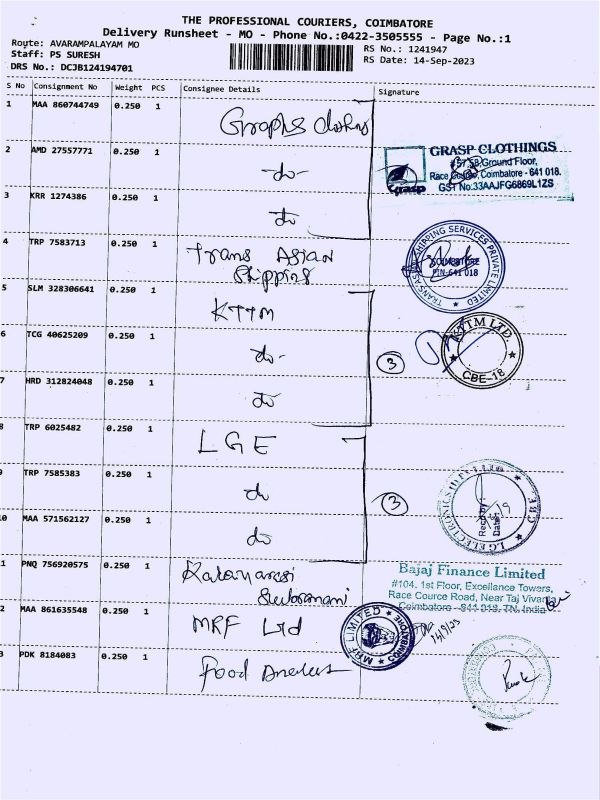 THE PROFESSIONAL COURIERS, COIMBATORE
Delivery Runsheet - MO - Phone No.:0422-3505555 - Page No.:1
Route: AVARAMPALAYAM MO
RS No.: 1241947
Staff: PS SURESH
RS Date: 14-Sep-2023
DRS No.: DCJB124194701
S No Consignment No Weight PCS Consignee Details Signature
1 MAA 860744749 0.250 1
2 AMD 27557771 0.250 1 -do-
GRASP CLOTHINGS
Ground Floor,
Race Course, Coimbatore - 641 018.
GST No:33AAJFG6869L1ZS
Grasp
3 KRR 1274386 0.250 1 do
4 TRP 7583713 0.250 1 Trans Asian
Shipping
TRANS ASIAN SHIPPING SERVICES PRIVATE LIMITED
COIMBATORE
PIN-641 018
5 SLM 328306641 0.250 1 KTTM
6 TCG 40625209 0.250 1 do-
3
KTTM LTD.
CBE-18
7 HRD 312824048 0.250 1 do
8 TRP 6025482 0.250 1 LGE
9 TRP 7585383 0.250 1 do
3
LG ELECTRONICS
CBE
Recd by:
Date:
0 MAA 571562127 0.250 1 do
1 PNQ 756920575 0.250 1
Bajaj Finance Limited
#104, 1st Floor, Excellance Towers,
Race Cource Road, Near Taj Vivanta
Coimbatore - 641 018. TN. India
2 MAA 861635548 0.250 1 MRF Ltd
MRF LIMITED
COIMBATORE
3 PDK 8184083 0.250 1 Food